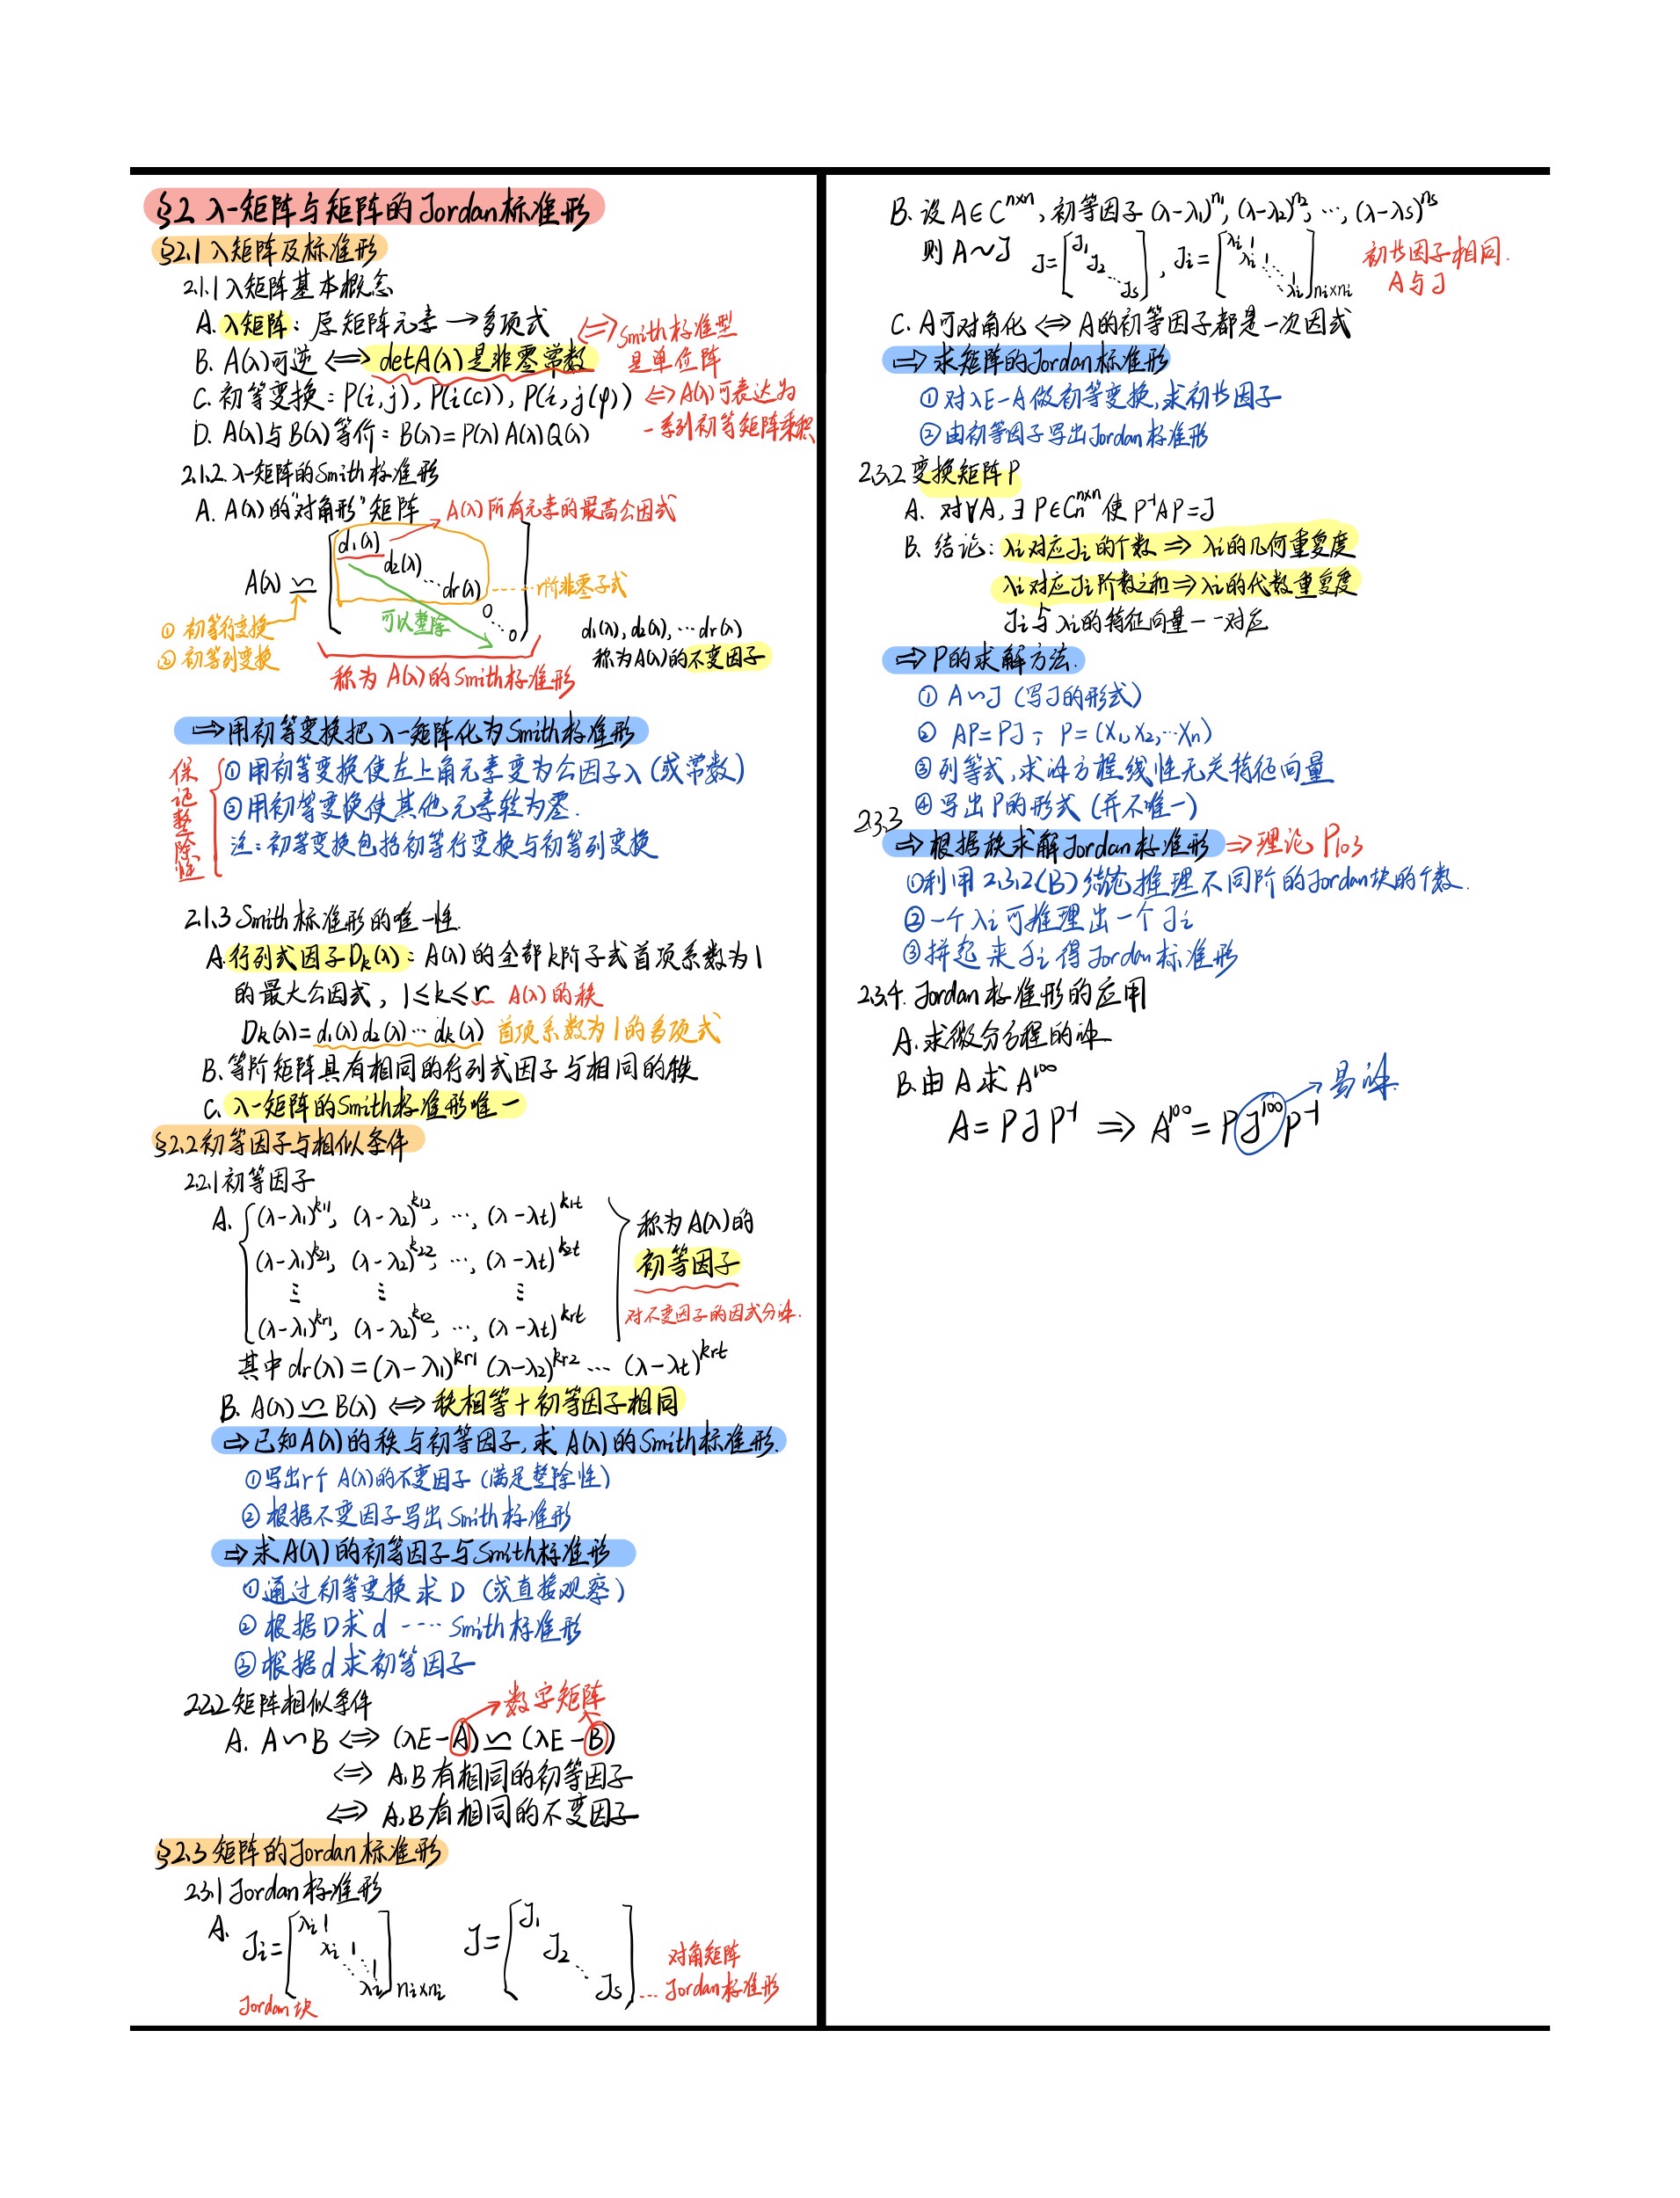 §2 λ-矩阵与矩阵的Jordan标准形
§2.1 λ矩阵及标准形
2.1.1 λ矩阵基本概念
A. λ矩阵：原矩阵元素→多项式
B. A(λ)可逆 ⟺ detA(λ)是非零常数
⟺Smith标准型
是单位阵
C. 初等变换：P(i,j), P(i(c)), P(i,j(φ))
⟺A(λ)可表达为
一系列初等矩阵乘积
D. A(λ)与B(λ)等价：B(λ)=P(λ)A(λ)Q(λ)
2.1.2 λ-矩阵的Smith标准形
A. A(λ)的"对角形"矩阵
A(λ)所有元素的最高公因式
A(λ) ≃ [d₁(λ) d₂(λ) ⋯ dr(λ) 0 ⋱ 0]
r阶非零子式
可以整除
① 初等行变换
② 初等列变换
称为A(λ)的Smith标准形
d₁(λ), d₂(λ), ⋯dr(λ)
称为A(λ)的不变因子
⇒用初等变换把λ-矩阵化为Smith标准形
保证整除性
①用初等变换使左上角元素变为公因子λ(或常数)
②用初等变换使其他元素转为零.
注：初等变换包括初等行变换与初等列变换
2.1.3 Smith标准形的唯一性.
A.行列式因子Dk(λ)：A(λ)的全部k阶子式首项系数为1
的最大公因式，1≤k≤r A(λ)的秩
Dk(λ)=d₁(λ)d₂(λ)⋯dk(λ) 首项系数为1的多项式
B.等阶矩阵具有相同的行列式因子与相同的秩
C. λ-矩阵的Smith标准形唯一
§2.2初等因子与相似条件
2.2.1初等因子
A. (λ-λ₁)^k11, (λ-λ₂)^k12, ⋯, (λ-λt)^k1t
(λ-λ₁)^k21, (λ-λ₂)^k22, ⋯, (λ-λt)^k2t
⋮ ⋮ ⋮
(λ-λ₁)^kr1, (λ-λ₂)^kr2, ⋯, (λ-λt)^krt
称为A(λ)的
初等因子
对不变因子的因式分解.
其中dr(λ)=(λ-λ₁)^kr1 (λ-λ₂)^kr2 ⋯ (λ-λt)^krt
B. A(λ)≃B(λ) ⟺ 秩相等+初等因子相同
⇒已知A(λ)的秩与初等因子,求A(λ)的Smith标准形.
①写出r个A(λ)的不变因子(满足整除性)
②根据不变因子写出Smith标准形
⇒求A(λ)的初等因子与Smith标准形
①通过初等变换求D (或直接观察)
②根据D求d ---- Smith标准形
③根据d求初等因子
2.2.2矩阵相似条件
→数字矩阵
A. A∽B ⟺ (λE-A)≃(λE-B)
⟺ A,B有相同的初等因子
⟺ A,B有相同的不变因子
§2.3矩阵的Jordan标准形
2.3.1 Jordan标准形
A. Ji=[λi 1 λi 1 ⋱ 1 λi]ni×ni J=[J₁ J₂ ⋱ Js]
Jordan块
对角矩阵
…Jordan标准形
B. 设A∈C^n×n, 初等因子(λ-λ₁)^n₁, (λ-λ₂)^n₂, ⋯, (λ-λs)^ns
则A∽J J=[J₁ J₂ ⋱ Js], Ji=[λi 1 λi 1 ⋱ 1 λi]ni×ni
初等因子相同.
A与J
C. A可对角化 ⟺ A的初等因子都是一次因式
⇒求矩阵的Jordan标准形
①对λE-A做初等变换,求初等因子
②由初等因子写出Jordan标准形
2.3.2变换矩阵P
A. 对∀A, ∃ P∈Cn^n×n 使 P⁻¹AP=J
B. 结论：λi对应Ji的个数⇒λi的几何重复度
λi对应Ji阶数之和⇒λi的代数重复度
Ji与λi的特征向量一一对应
⇒P的求解方法.
① A∽J (写J的形式)
② AP=PJ； P=(X₁,X₂,⋯Xn)
③列等式,求解方程线性无关特征向量
④写出P的形式(并不唯一)
2.3.3
⇒根据秩求解Jordan标准形⇒理论 P103
①利用2.3.2(B)结论推理不同阶的Jordan块的个数.
②一个λi可推理出一个Ji
③拼起来Ji得Jordan标准形
2.3.4. Jordan标准形的应用
A.求微分方程的解
B.由A求A¹⁰⁰
→易求.
A=PJP⁻¹ ⇒ A¹⁰⁰=PJ¹⁰⁰P⁻¹